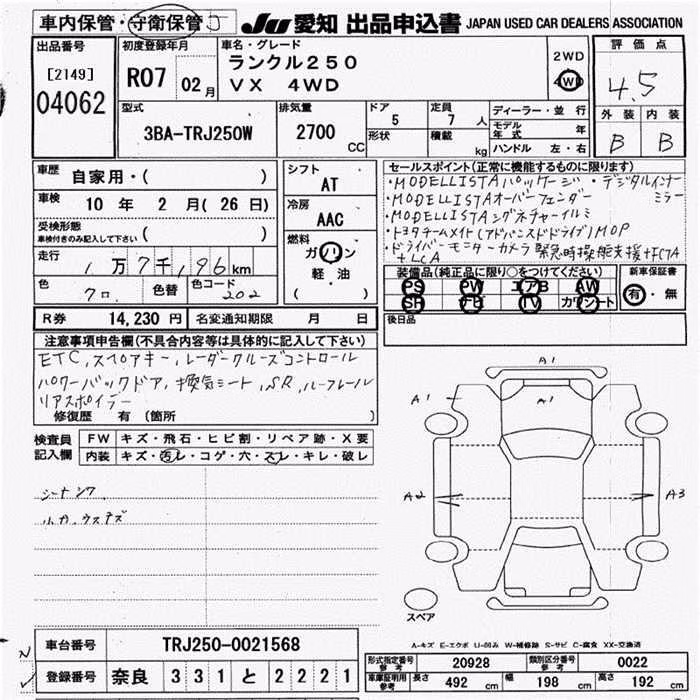 車内保管・守衛保管
JU 愛知 出品申込書 JAPAN USED CAR DEALERS ASSOCIATION
出品番号
[2149]
04062
初度登録年月
R07 02月
車名・グレード
ランクル250
VX 4WD
2WD
4WD
評価点
4.5
外装 内装
B B
型式
3BA-TRJ250W
排気量
2700 CC
ドア
5
形状
定員
7 人
積載 kg
ディーラー・並行
モデル年式 年
ハンドル 左・右
車歴
自家用・( )
車検
10 年 2 月(26 日)
受検形態
車検付きのみ記入して下さい ( )
走行
1万7千196km
色
クロ
色替
色コード
202
シフト
AT
冷房
AAC
燃料
ガソリン
軽・油
( )
セールスポイント(正常に機能するものに限ります)
・MODELLISTAパッケージ・デジタルインナーミラー
・MODELLISTAオーバーフェンダー
・MODELLISTAシグネチャーイルミ
・トヨタチームメイト(アドバンスドドライブ)MOP
・ドライバーモニターカメラ 緊急時操舵支援+FCTA
+LCA
装備品(純正品に限り○をつけてください)
PS PW エアB AW
SR ナビ TV カワシート
新車保証書
有・無
後日品
R券 14,230 円 名変通知期限 月 日
注意事項申告欄(不具合内容等は具体的に記入して下さい)
ETC,スペアキー,レーダークルーズコントロール
パワーバックドア,換気シート,SR,ルーフレール
リアスポイラー
修復歴 有 (箇所 )
検査員記入欄
FW キズ・飛石・ヒビ割・リペア跡・X要
内装 キズ・汚レ・コゲ・穴・スレ・キレ・破レ
小カ,ウスキズ
A1
A1
A1
A2
A3
スペア
A-キズ E-エクボ U-凹み W-補修跡 S-サビ C-腐食 XX-交換済
車台番号 TRJ250-0021568
登録番号 奈良 331 と 2221
型式指定番号 参考 20928 類別区分番号 参考 0022
車庫証明用参考 長さ 492 cm 幅 198 cm 高さ 192 cm